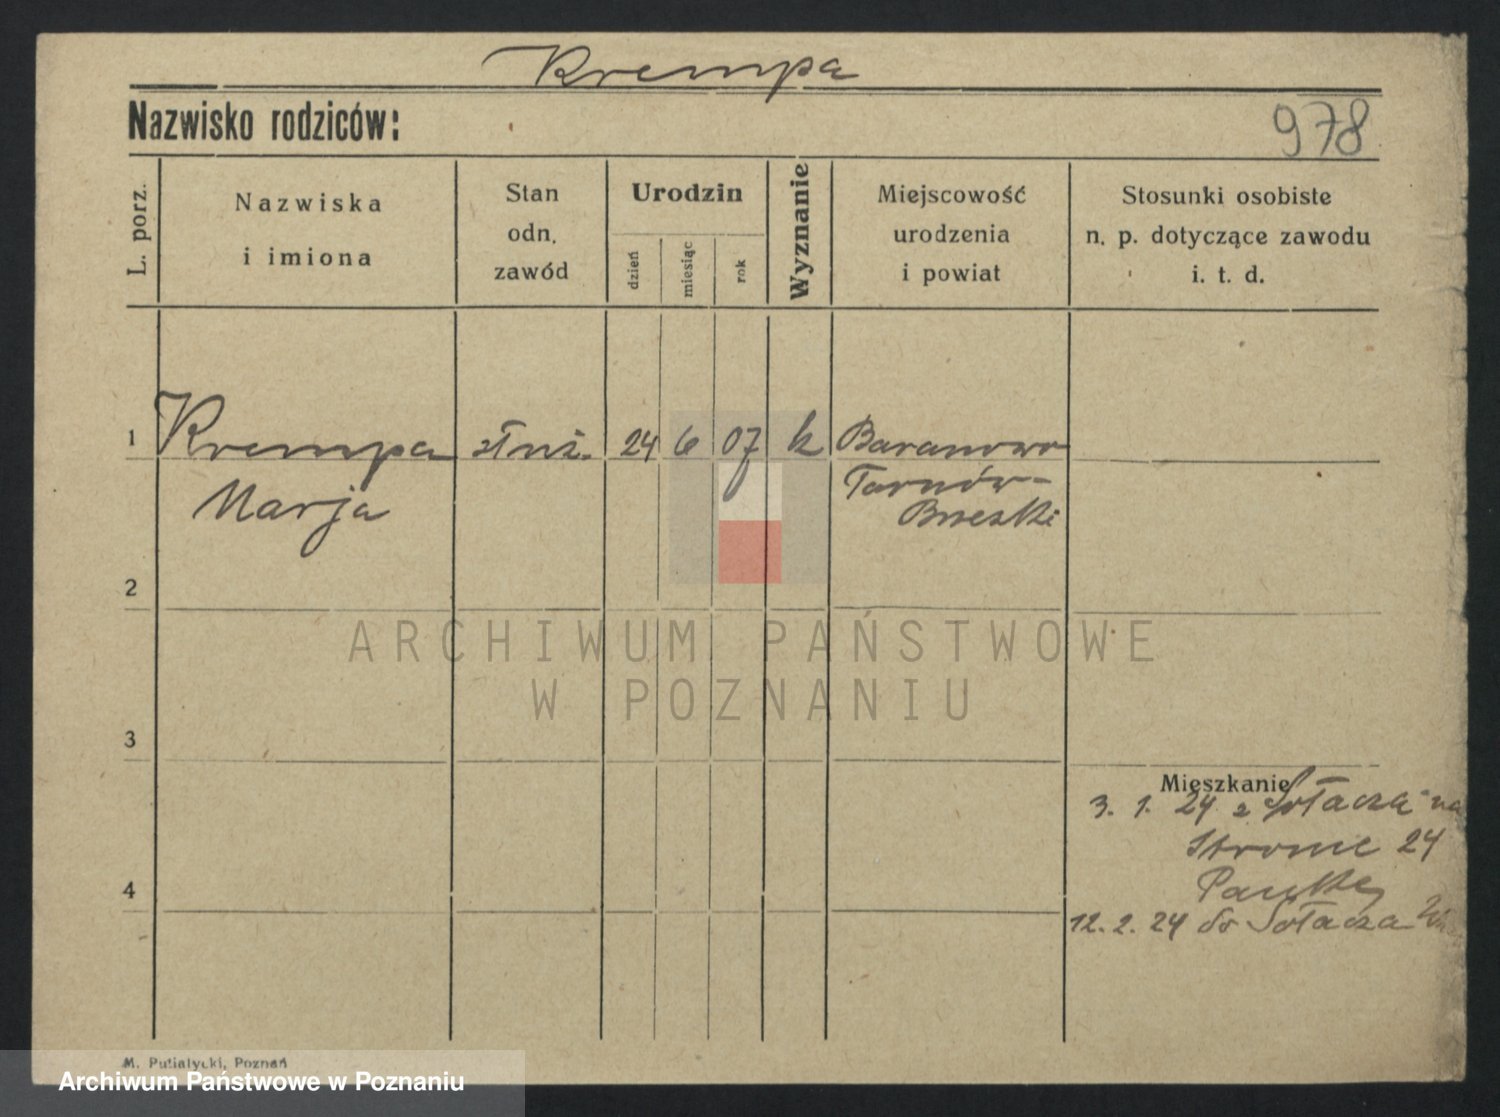 Krempa
Nazwisko rodziców:
978
L. porz.
Nazwiska
i imiona
Stan
odn.
zawód
Urodzin
dzień
miesiąc
rok
Wyznanie
Miejscowość
urodzenia
i powiat
Stosunki osobiste
n. p. dotyczące zawodu
i. t. d.
1
Krempa służ. 24 6 07 k Baranowo
Marja
Tarnów-
2
3
4
Mieszkanie
3. 1. 24 z Sołacza na
Stromie 24
12. 2. 24 do Sołacza
M. Putiatycki, Poznań
ARCHIWUM PAŃSTWOWE
W POZNANIU
Archiwum Państwowe w Poznaniu